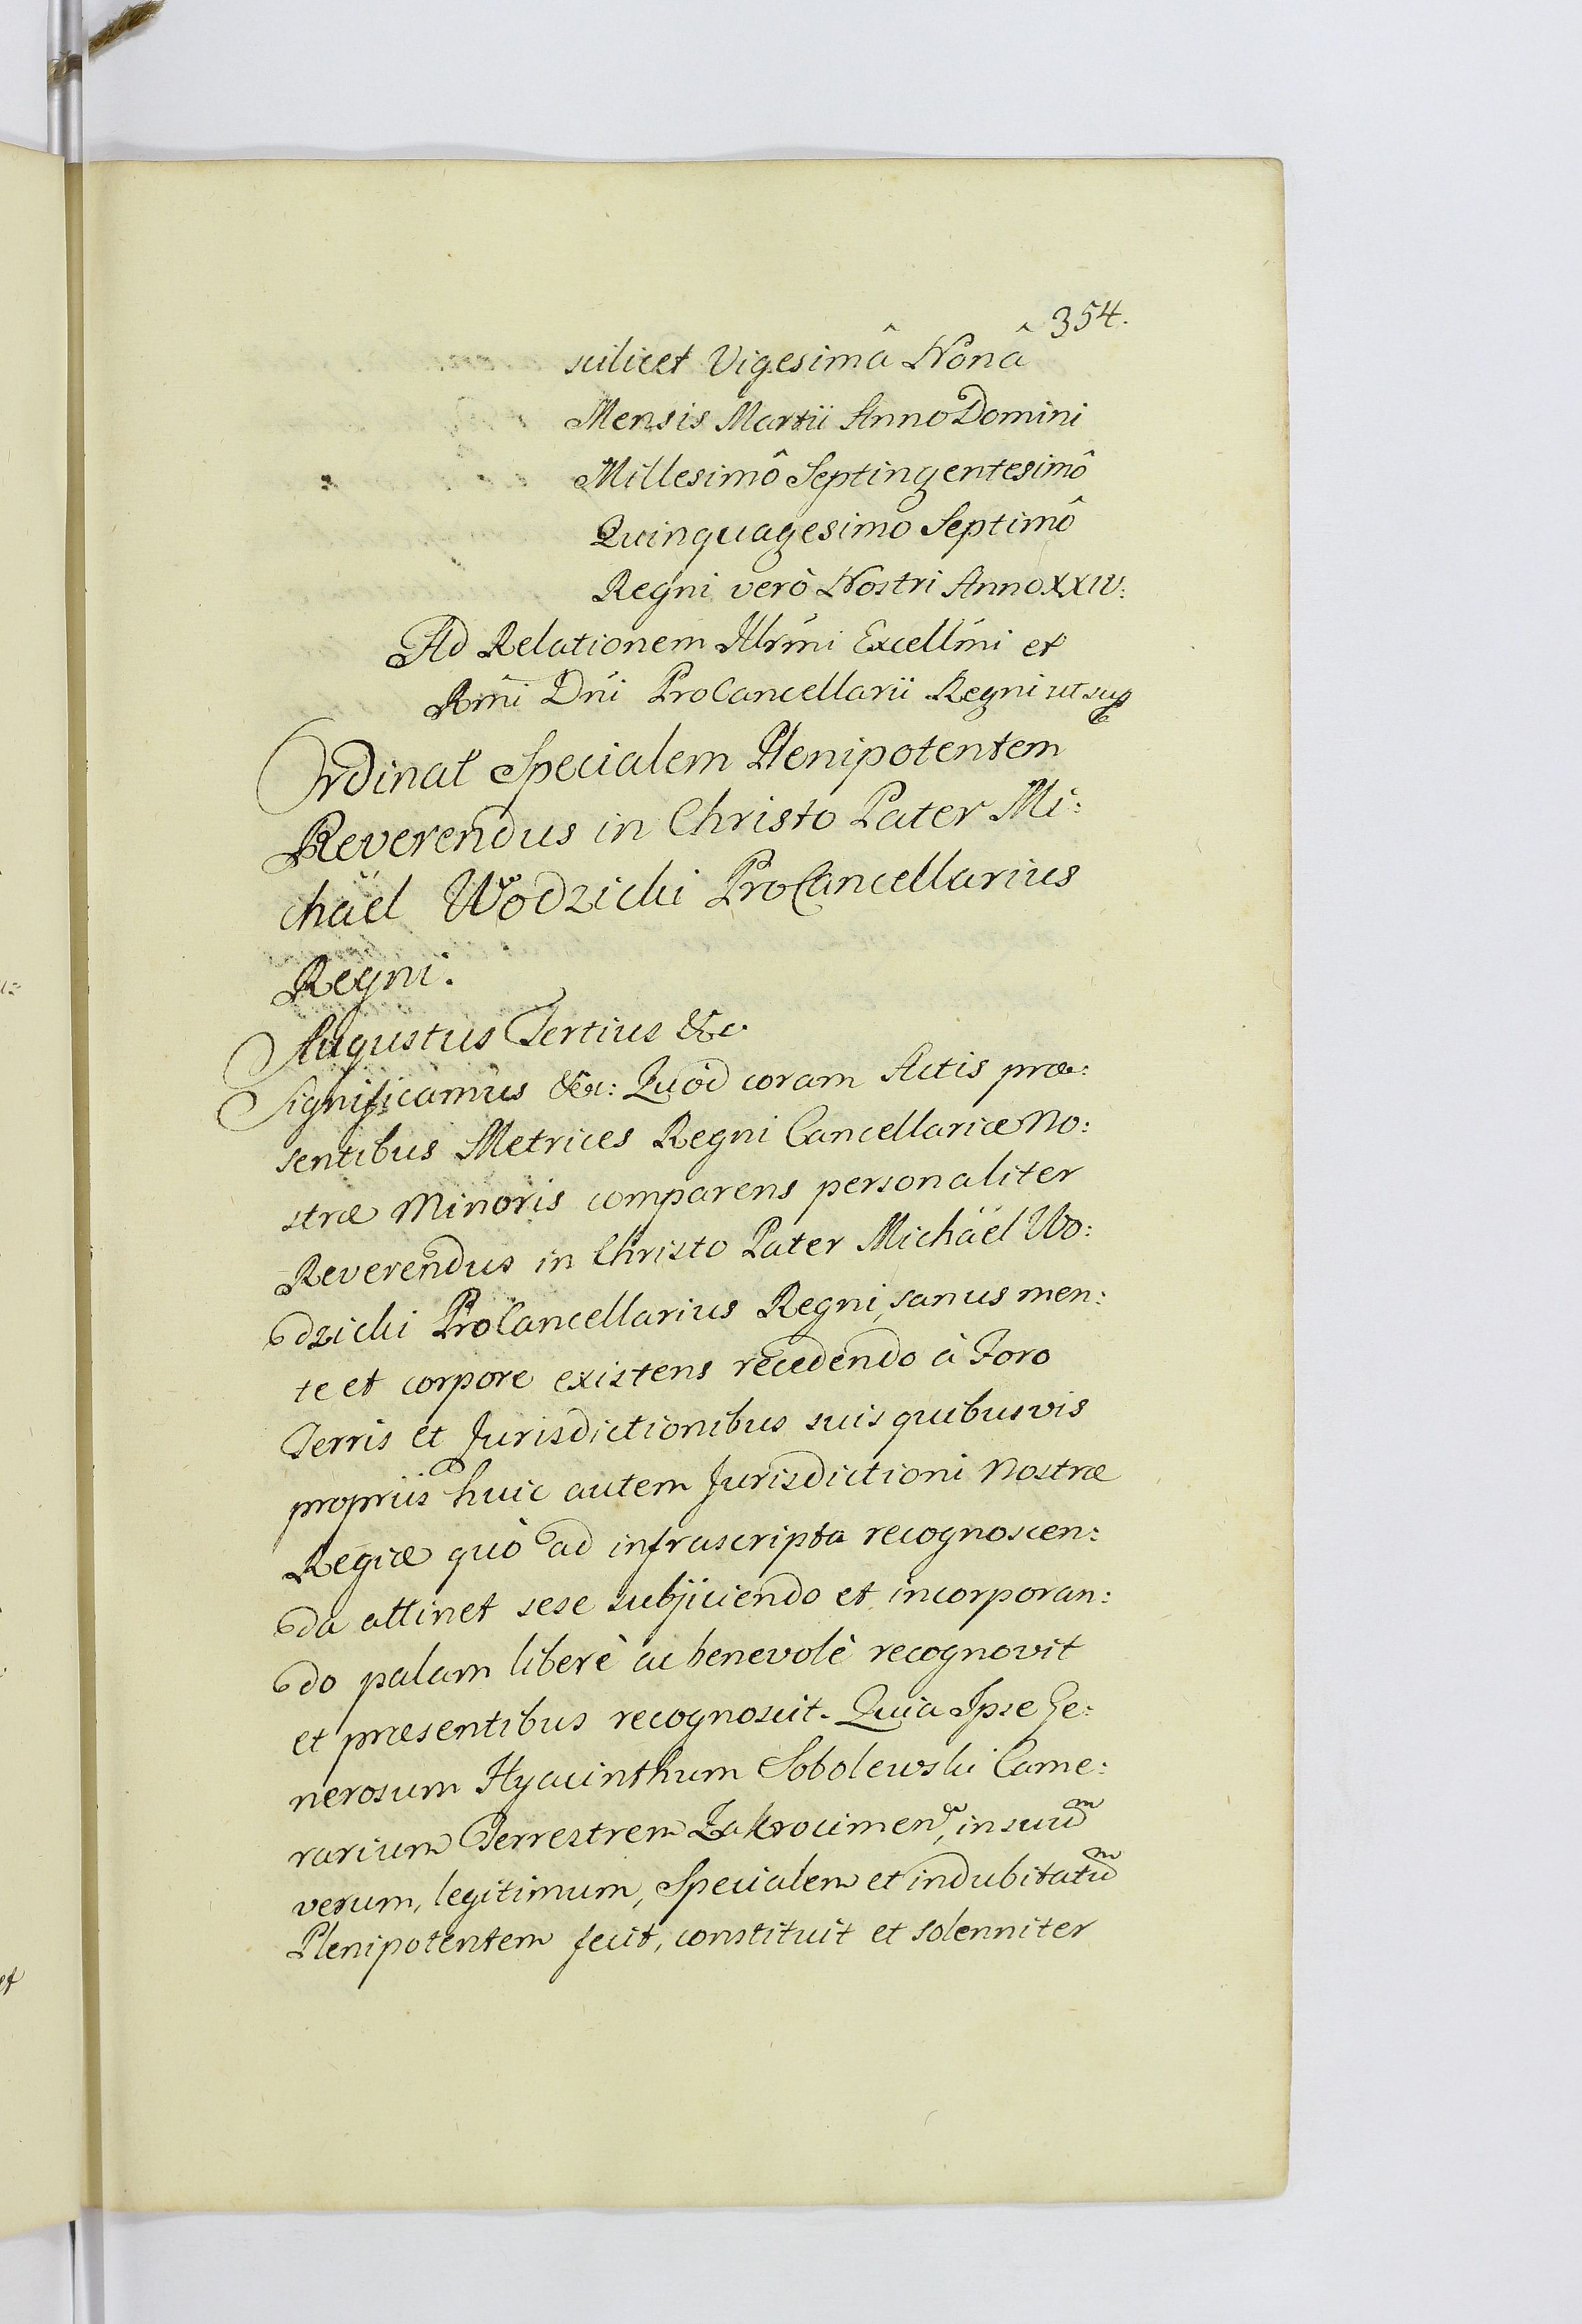 354.
scilicet Vigesimâ Nonâ
Mensis Martii Anno Domini
Millesimô Septingentesimô
Quinquagesimo Septimô
Regni verò Nostri Anno XXIV:
Ad Relationem Illrm̃i Excellm̃i et
Rm̃i Dñi ProCancellarii Regni ut sup
Ordinat Specialem Plenipotentem
Reverendus in Christo Pater Mi:
chäel Wodzicki ProCancellarius
Regni.
Augustus Tertius &c
Significamus &c: Quod coram Actis præ:
sentibus Metrices Regni Cancellariæ No:
stræ Minoris comparens personaliter
Reverendus in Christo Pater Michäel Wo:
dzicki ProCancellarius Regni, sanus men:
te et corpore existens recedendo à Foro
Terris et Jurisdictionibus suis quibusvis
propriis huic autem Jurisdictioni Nostræ
Regiæ quò ad infrascripta recognoscen:
da attinet sese subjiciendo et incorporan:
do palam liberè ac benevolè recognovit
et præsentibus recognoscit. Quia Ipse Ge:
nerosum Hyacinthum Sobolewski Came:
rarium Terrestrem Zakrocimen, in suum
verum, legitimum, Specialem et indubitatum
Plenipotentem fecit, constituit et solenniter